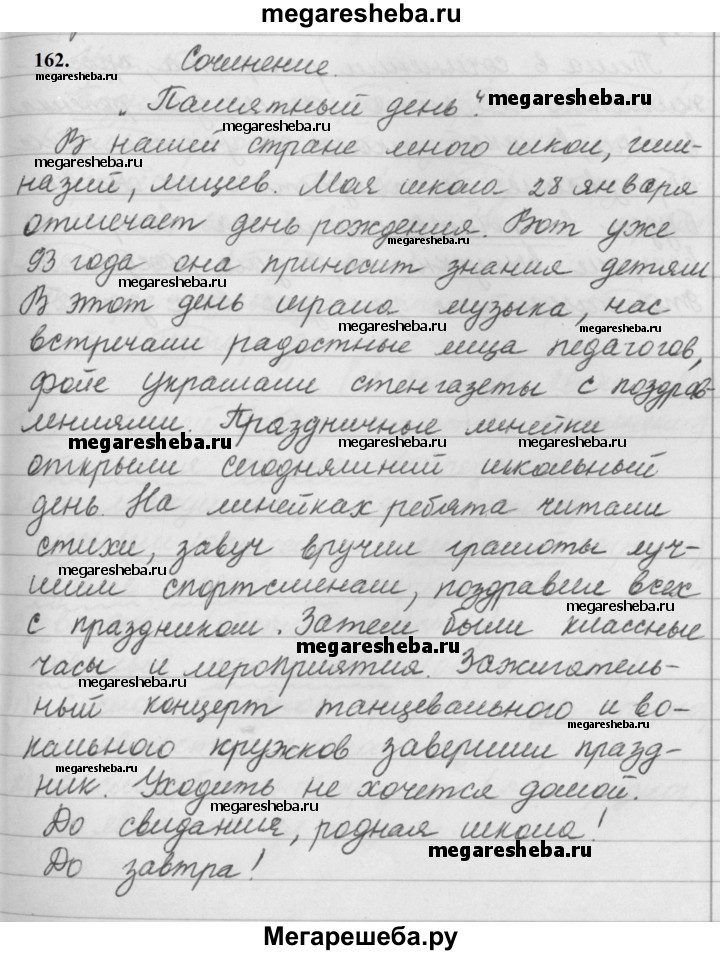 megaresheba.ru
162. Сочинение.
megaresheba.ru
„Памятный день“. megaresheba.ru
megaresheba.ru
В нашей стране много школ, гим-
megaresheba.ru
назий, лицеев. Моя школа 28 января
отмечает день рождения. Вот уже
megaresheba.ru
93 года она приносит знания детям
megaresheba.ru
В этот день играла музыка, нас
megaresheba.ru megaresheba.ru
встречали радостные лица педагогов,
фойе украшали стенгазеты с поздрав-
лениями. Праздничные линейки
megaresheba.ru megaresheba.ru megaresheba.ru
открыли сегодняшний школьный
день. На линейках ребята читали
стихи, завуч вручил грамоты луч-
megaresheba.ru
шим спортсменам, поздравил всех
megaresheba.ru
с праздником. Затем были классные
megaresheba.ru
часы и мероприятия. Зажигатель-
megaresheba.ru
ный концерт танцевального и во-
megaresheba.ru
кального кружков завершил празд-
megaresheba.ru
ник. Уходить не хочется домой.
megaresheba.ru
До свидания, родная школа!
megaresheba.ru
До завтра!
Мегарешеба.ру